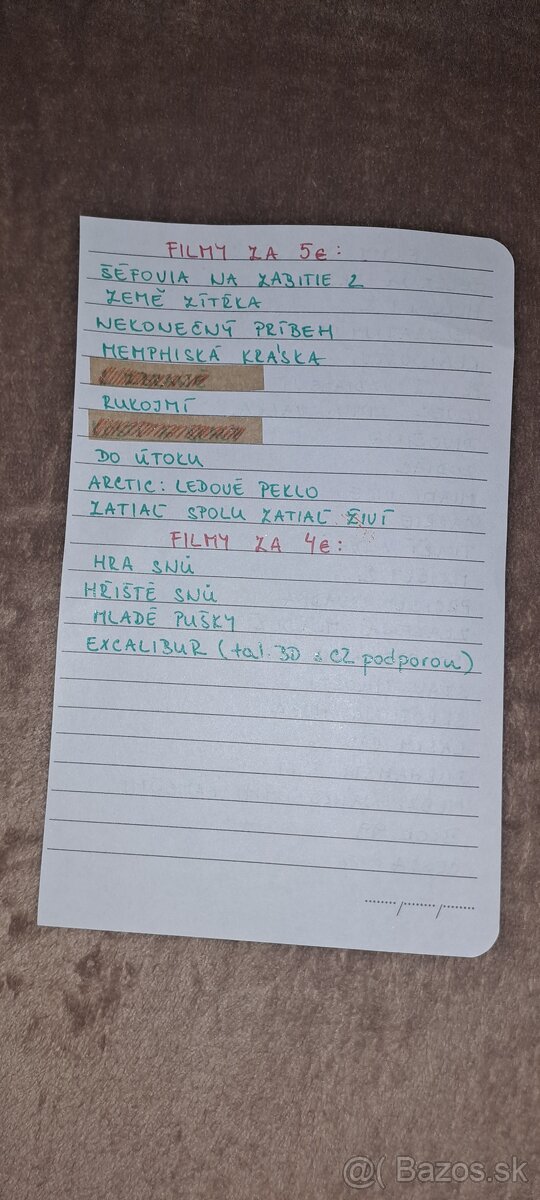 FILMY ZA 5€:
ŠÉFOVIA NA ZABITIE 2
ZEMĚ ZÍTŘKA
NEKONEČNÝ PRÍBEH
MEMPHISKÁ KRÁSKA
RUKOJMÍ
DO ÚTOKU
ARCTIC: LEDOVÉ PEKLO
ZATIAĽ SPOLU ZATIAĽ ŽIVÍ
FILMY ZA 4€:
HRA SNŮ
HŘIŠTĚ SNŮ
MLADÉ PUŠKY
EXCALIBUR (tal. 3D s CZ podporou)
@( Bazos.sk